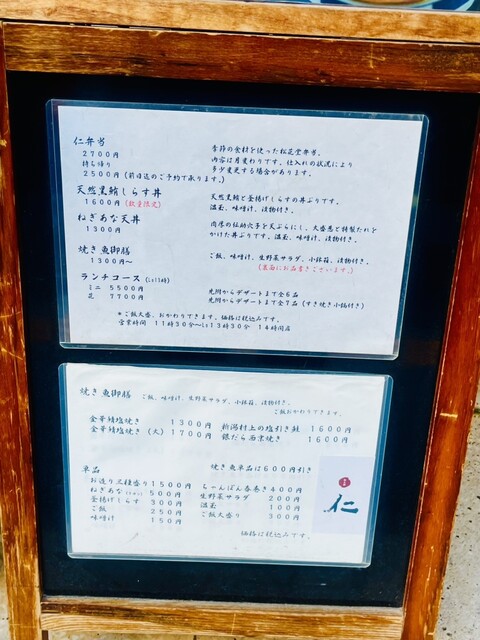 仁弁当
2700円
持ち帰り
2500円 (前日迄のご予約て承ります。)
季節の食材を使った松花堂弁当。
内容は月変わりです。仕入れの状況により
多少変更する場合があります。
天然黒鮪しらす丼
1600円 (数量限定)
天然黒鮪と釜揚げしらすの丼ぶりです。
温玉、味噌汁、漬物付き。
ねぎあな天丼
1300円
肉厚の伝助穴子を天ぷらにし、大盛葱と特製だれを
かけた丼ぶりです。温玉、味噌汁、漬物付き。
焼き魚御膳
1300円~
ご飯、味噌汁、生野菜サラダ、小鉢稙、漬物付き。
ランチコース
ミニ 5500円
花 7700円
先附からデザートまで全6品
先附からデザートまで全7品 (すき焼き小鍋付き)
*ご飯大盛、おかわりできます。価格は税込みです。
営業時間 11時30分~Lo13時30分 14時閉店
焼き魚御膳 ご飯、味噌汁、生野菜サラダ、小鉢稙、漬物付き。
ご飯おかわりできます。
金華鯖塩焼き 1300円
金華鯖塩焼き (大) 1700円
新潟村上の塩引き鮭 1600円
銀だら西京焼き 1600円
単品
焼き魚単品は600円引き
お造り三種盛り 1500円
ねぎあな 500円
釜揚げしらす 300円
ご飯 250円
味噌汁 150円
ちゃんぽん春巻き 400円
生野菜サラダ 200円
温玉 100円
ご飯大盛り 300円
価格は税込みです。
仁